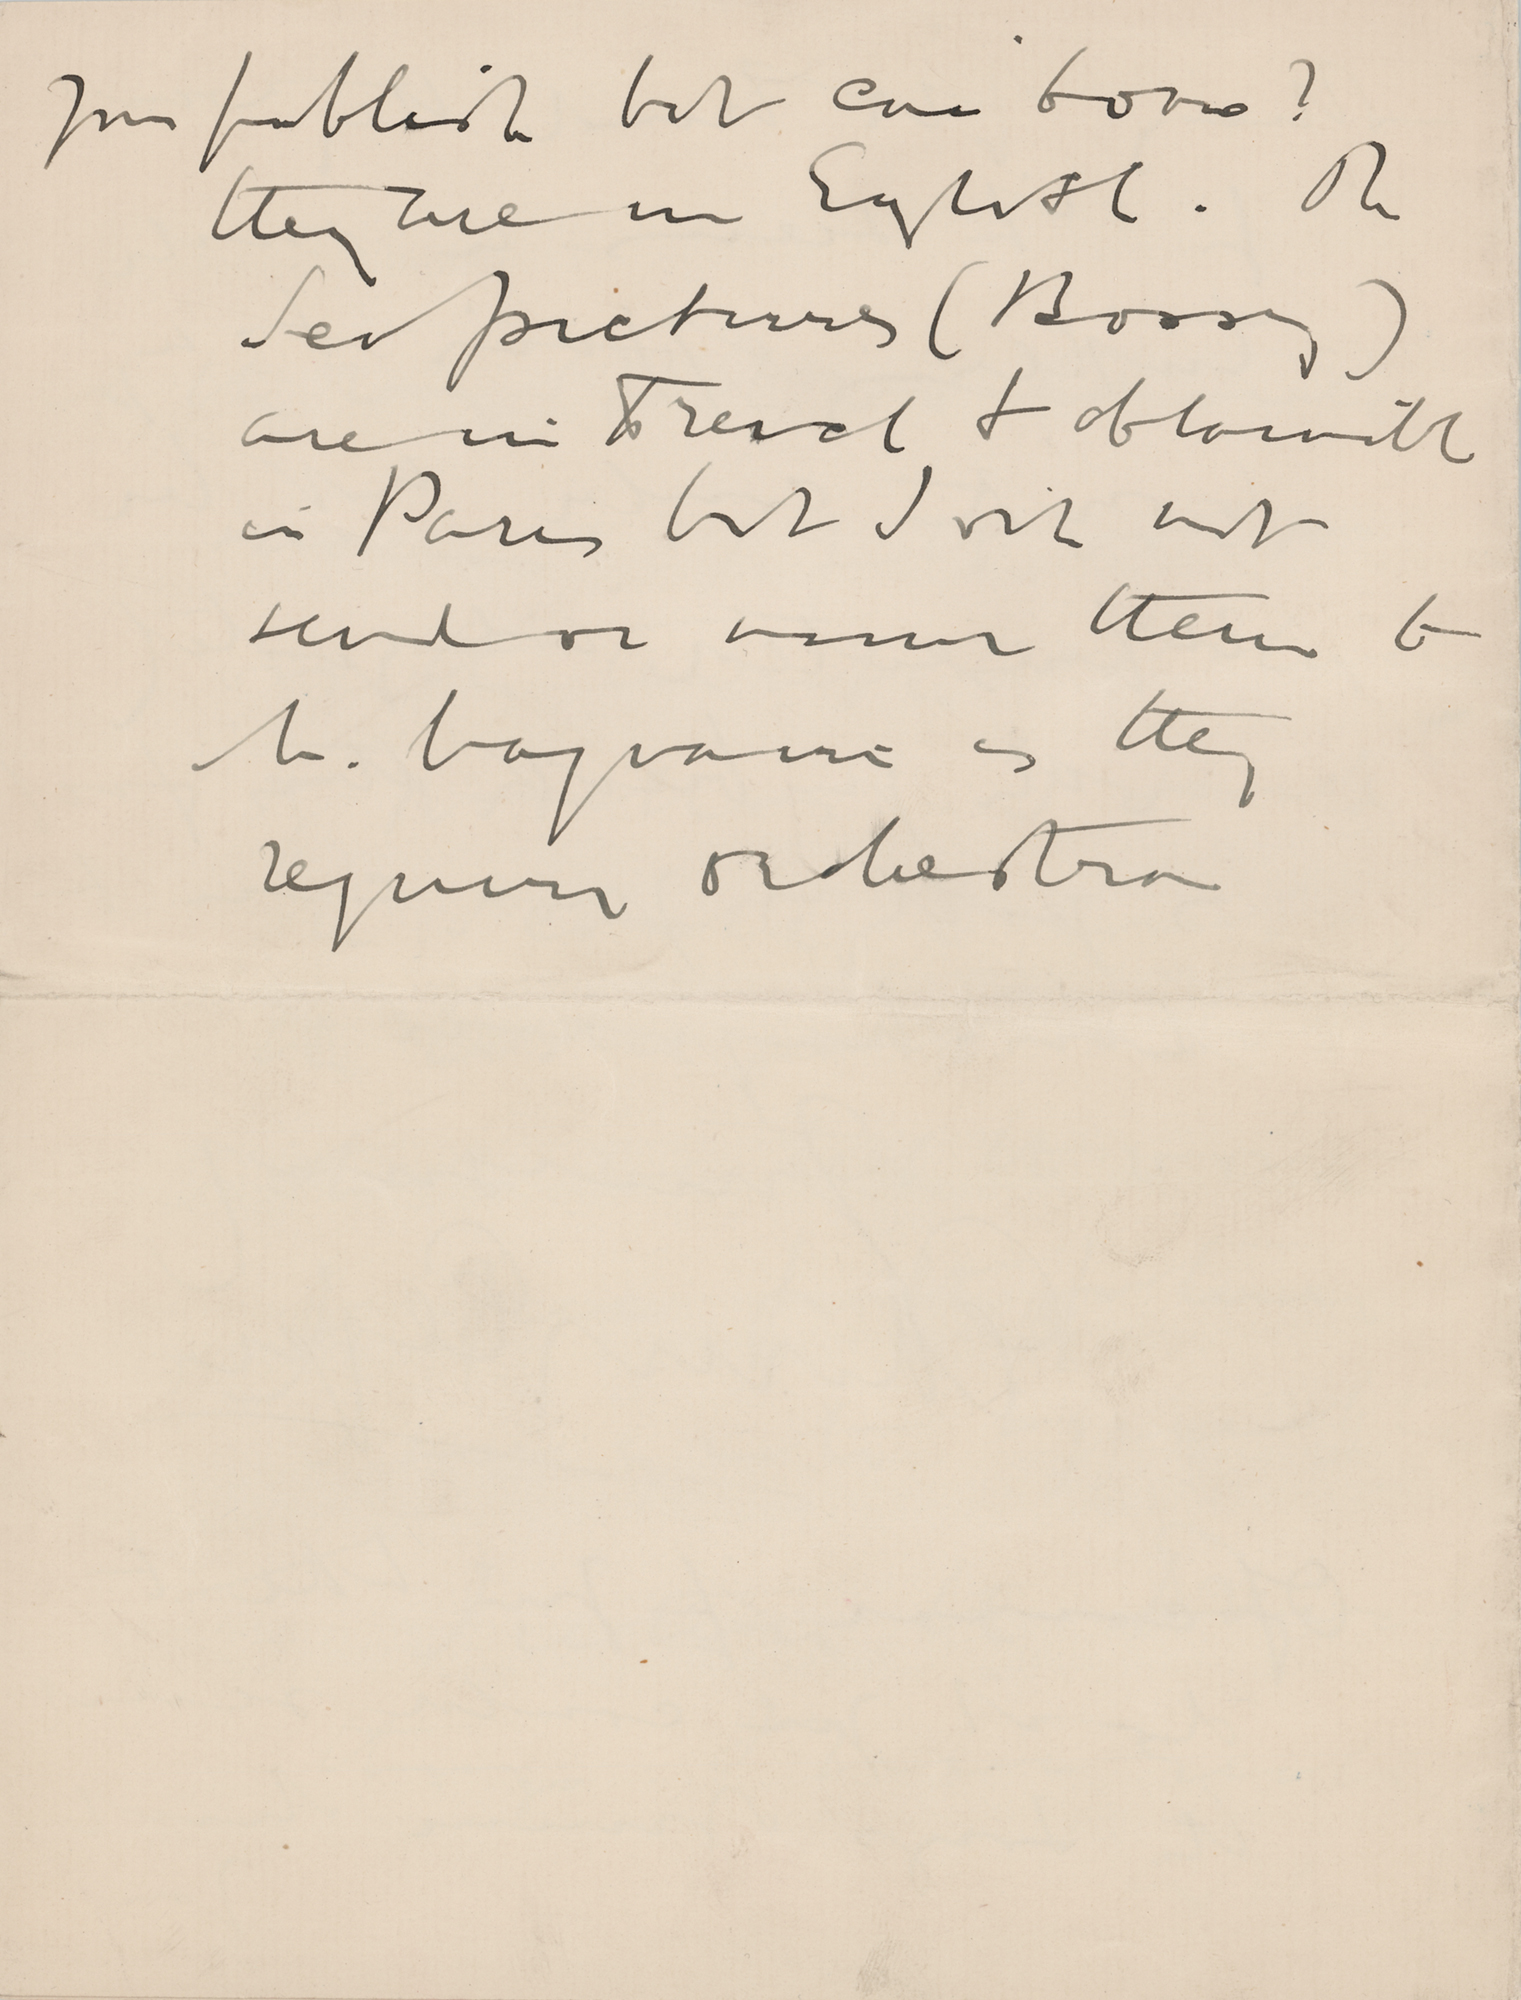 you publish but cui bono?
they are in English. The
Sea pictures (Boosey)
are in French & obtainable
in Paris but I not
send or them to
M. as they
require orchestra